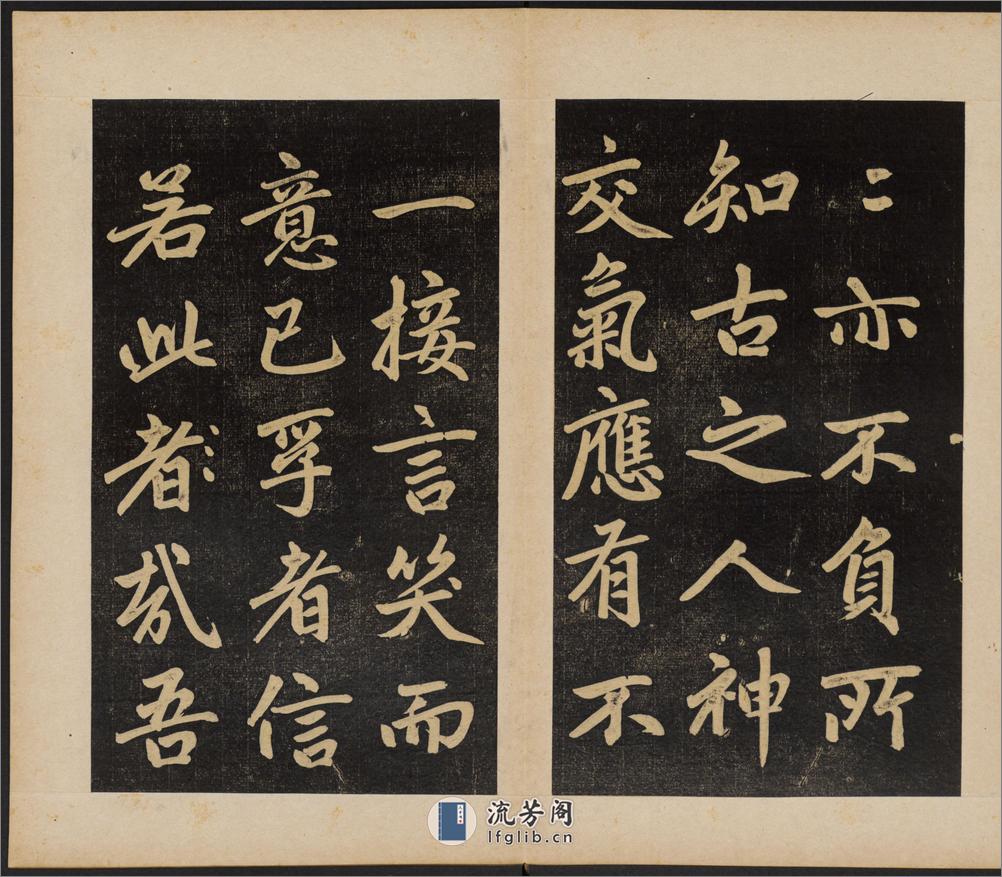 〻亦不負所
知古之人神
交氣應有不
一接言笑而
意已孚者信
若此者哉吾
流芳阁
lfglib.cn